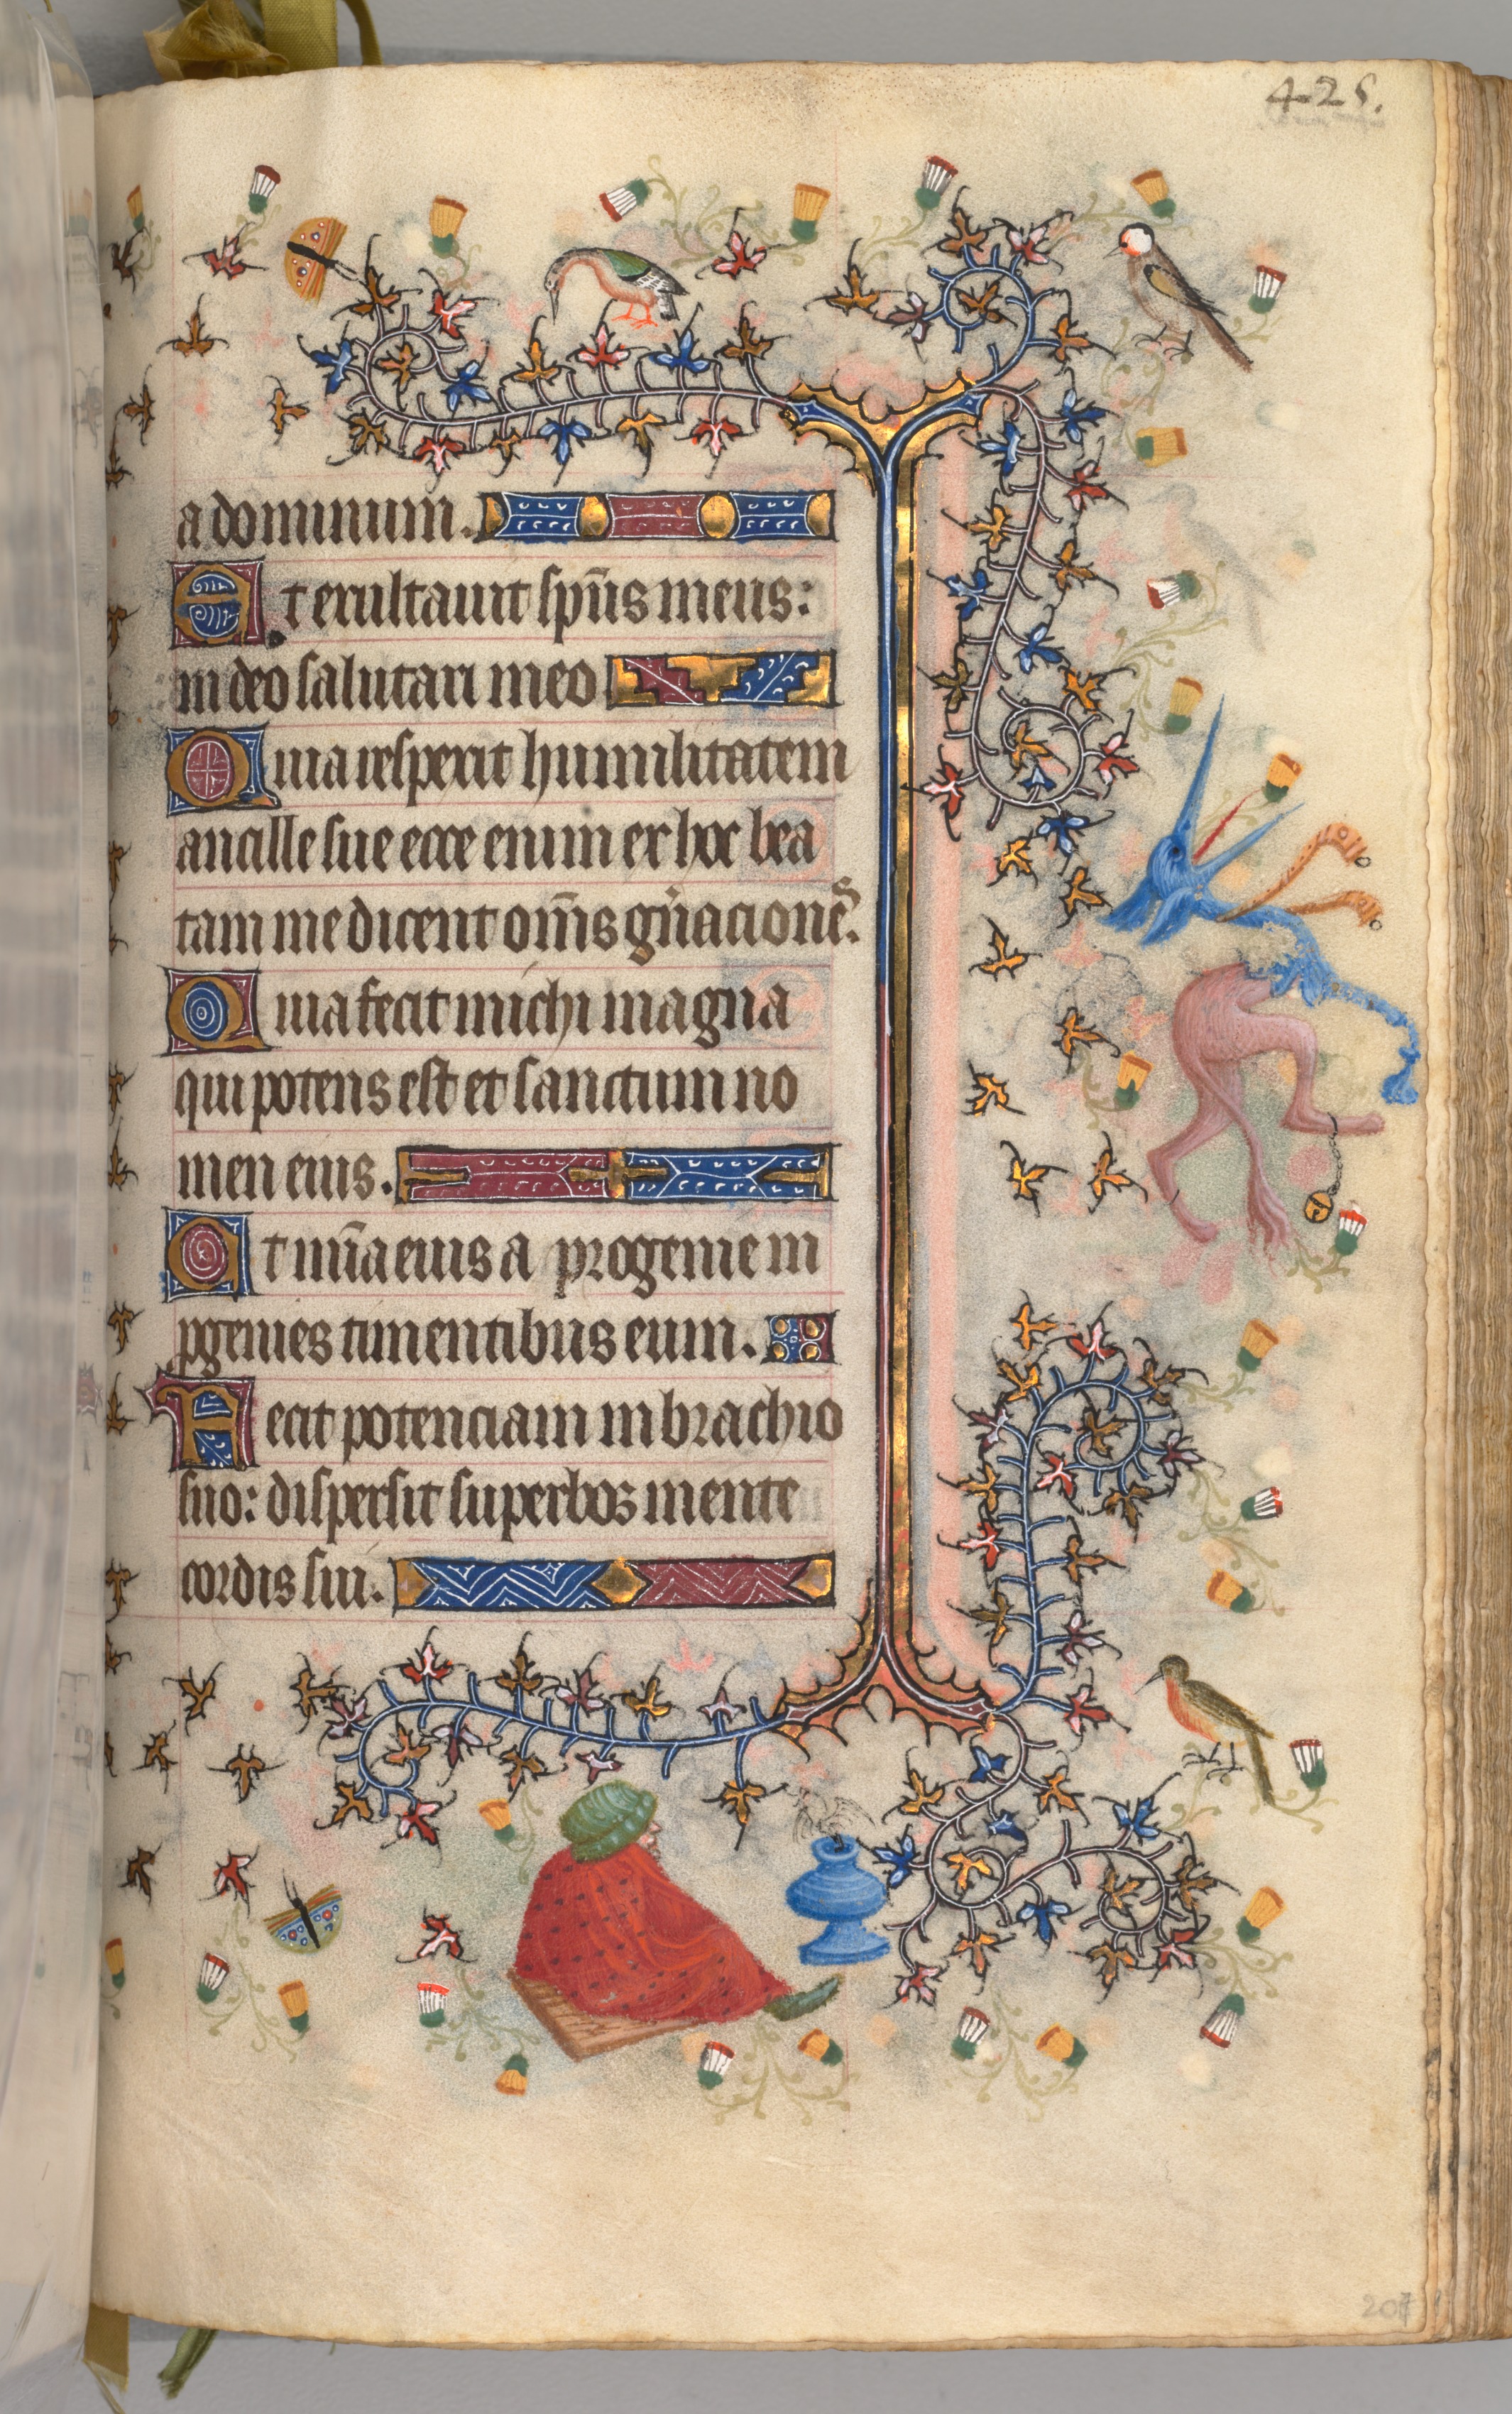 425.
a dominum.
Et exultauit sp̄us meus:
in deo salutari meo
Quia respexit humilitatem
ancille sue ecce enim ex hoc bea
tam me dicent om̄s gn̄aciones.
Quia fecit michi magna
qui potens est et sanctum no
men eius.
Et mīa eius a progenie in
pgenies timentibus eum.
Fecit potenciam in brachio
suo: dispersit superbos mente
cordis sui.